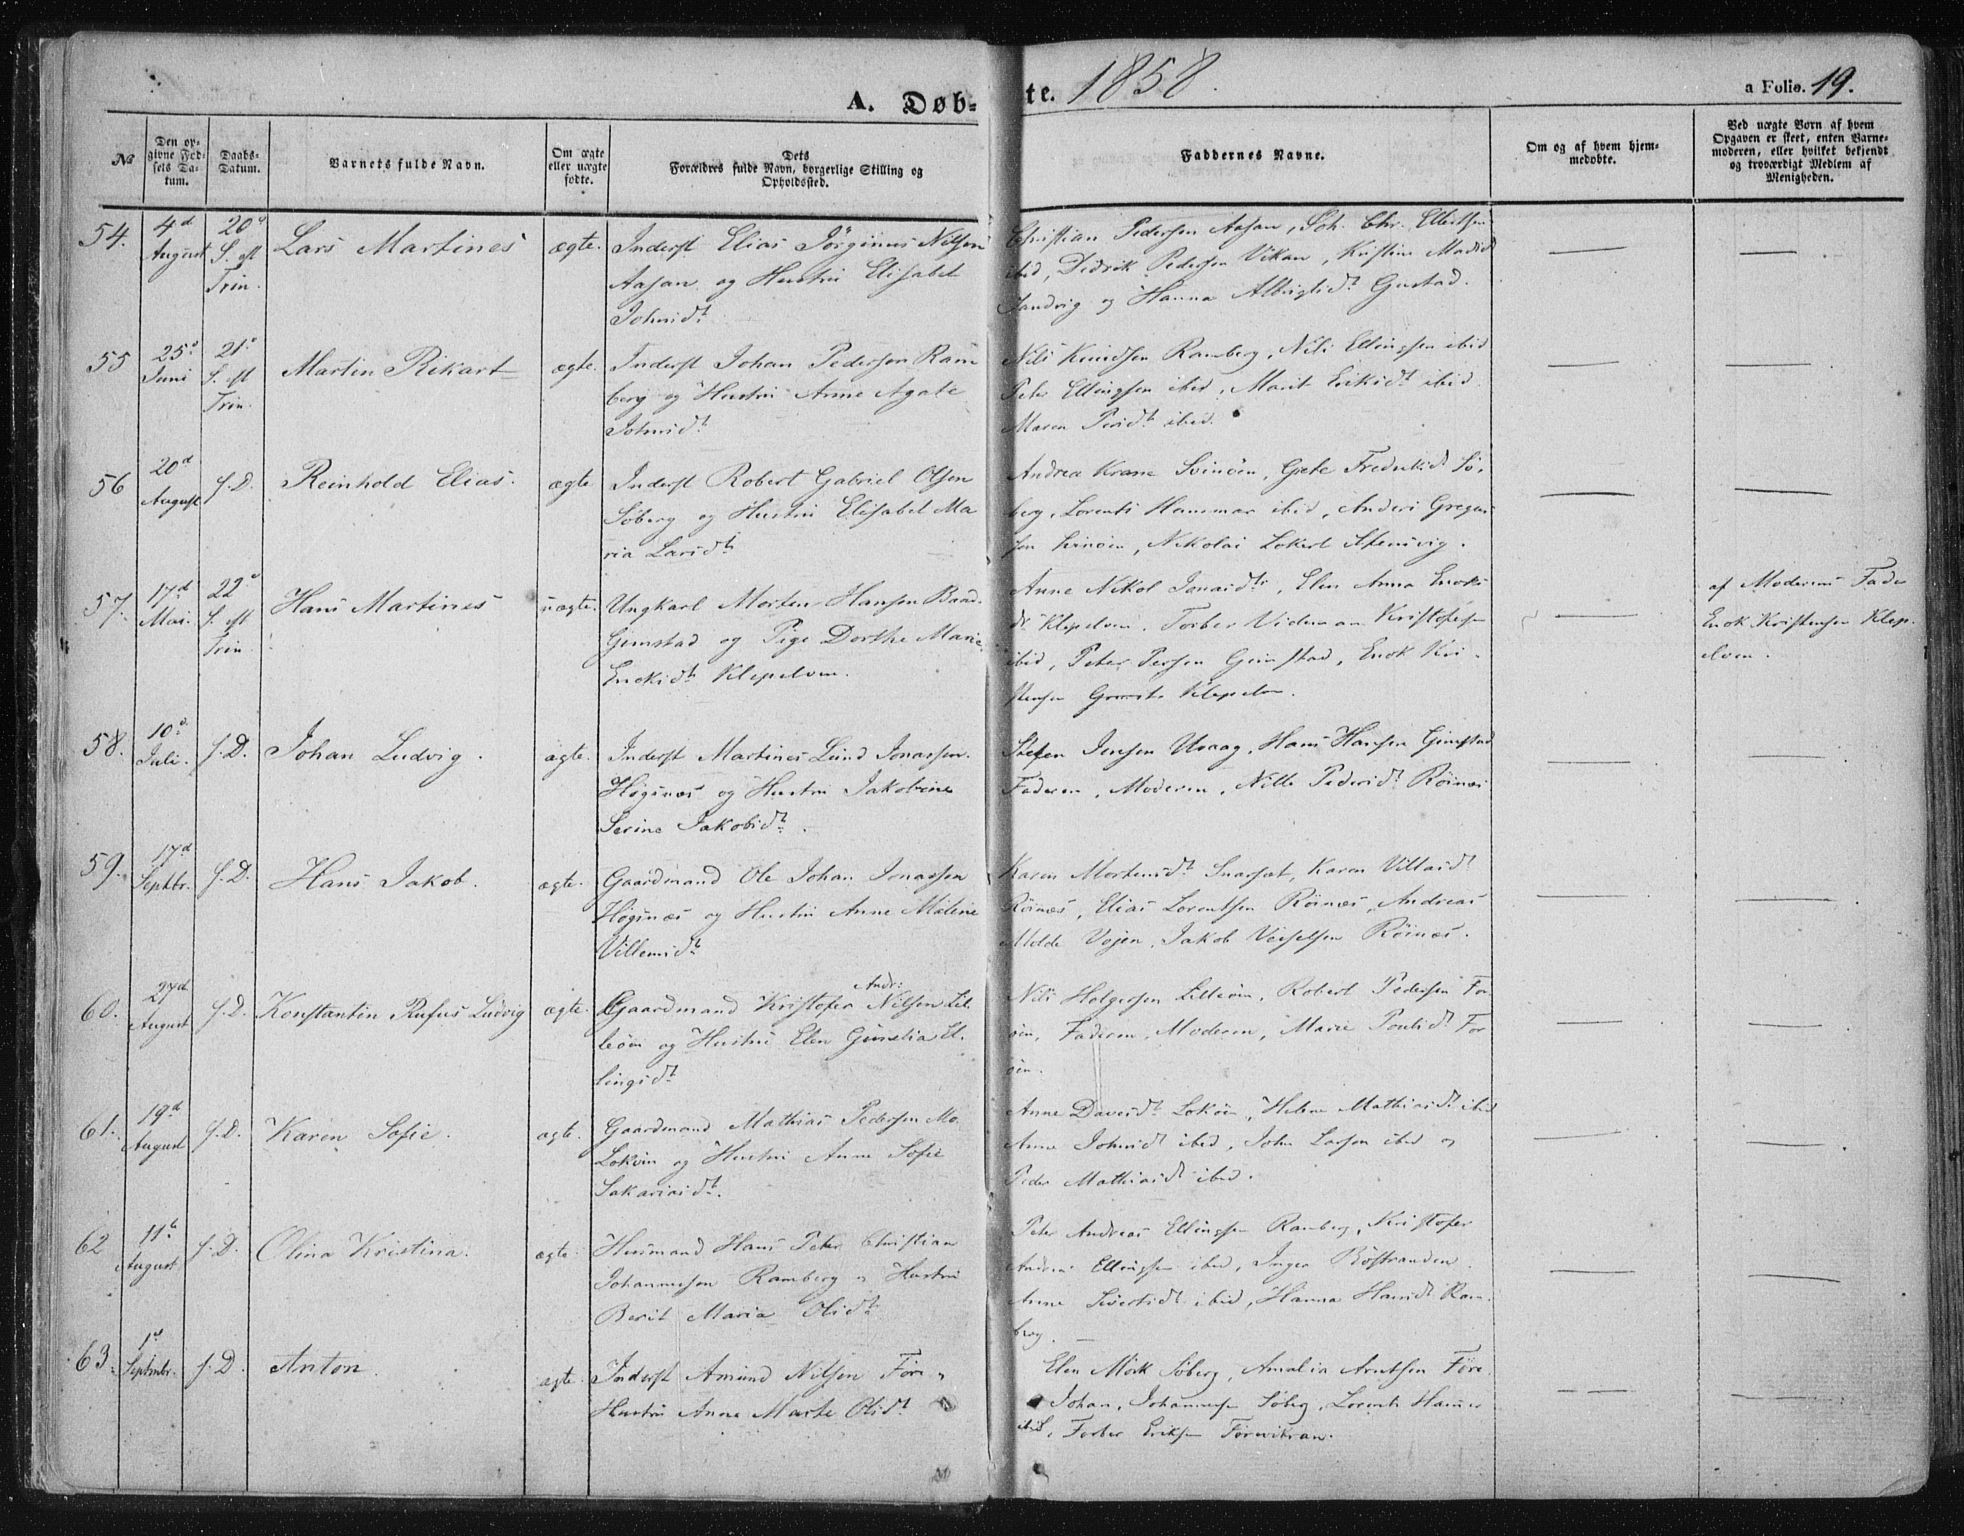 A. Døbte. 1858.
a Folio. 19.
No
Den opgivne Fødsels Datum.
Daabs-Datum.
Varnets fulde Navn.
Om ægte eller uægte fødte.
Dets Forældres fulde Navn, borgerlige Stilling og Opholdssted.
Faddernes Navne.
Om og af hvem hjemmedøbte.
Ved uægte Børn af hvem Opgaven er skeet, enten Barnemoderen, eller hvilket bekjendt og troværdigt Medlem af Menigheden.
54. 4d August 20d S. eft Trin. Lars Martines ægte. Inderst Elias Jörginus Nilsen
Aasan og Hustru Elisabet
Johnsdt
Christian Pedersen Aasan, Joh. Chr. Ellertsen
ibid, Didrik Pedersen Vikan, Kristine
Sandvig og Hanna Gustad.
55 25d Juni 21d S. eft Trin. Martin Rikart ægte. Inderst Johan Pedersen Ram
berg og Hustru Anne Agate
Johnsdt
Nils Knudsen Ramberg, Nils Ellingsen ibid
Peter Ellingsen ibid, Marit Eriksdt ibid
Maren Persdt ibid.
56 20d August s. D. Reinhold Elias. ægte Inderst Robert Gabriel Olsen
Søberg og Hustru Elisabet Ma
ria Larsdt
Andrea Krane Svinöen, Grete Fredriksdt Sö
berg, Lorents Hammar ibid, Anders Gregus
sen, Nikolai Lokert Stensvig.
57. 17d Mai. 22d S. eft Trin. Hans Martines uægte. Ungkarl Morten Hansen Baad
Gimstad og Pige Dorthe Marie
Enoksdt Klepelven.
Anne Nikol Jonasdtr, Elen Anna Enoks
dt Klepelven, Torber Kristofersen
ibid, Peter Persen Gimstad, Enok Kri
stensen Klepelv.
af Moderens Fader
Enok Kristensen Klep
elven.
58. 10d Juli. s. D. Johan Ludvig. ægte. Inderst Martines Lund Jonassen
Högsnæs og Hustru Jakobine
Serine Jakobsdt.
Steffen Jensen Uvaag, Hans Hansen Gimstad
Faderen, Moderen, Nille Pedersdt Röinæs
59. 17d Septbr. s. D. Hans Jakob. ægte. Gaardmand Ole Johan Jonassen
Högsnæs og Hustru Anne Malene
Villumsdt
Karen Mortensdt Snarset, Karen Villasdt
Röinæs, Elias Lorentsen Röinæs, Andreas
Molde Vojen, Jakob Röinæs.
60. 27d August s. D. Konstantin Rufus Ludvig ægte. Gaardmand Kristofer Andr: Nilsen Lil
leöen og Hustru Elen Gunelia El
lingsdt
Nils Holgersen Lilleöen, Robert Pedersen For
öen, Faderen, Moderen, Marie Poulsdt For
öen.
61. 19d August s. D. Karen Sofie. ægte. Gaardmand Mathias Pedersen Mo
Loköen og Hustru Anne Sofie
Sakariasdt.
Anne Davidsdt Loköen, Helene Mathiasdt ibid
Anne Johnsdt ibid, John Larsen ibid og
Peder Mathiasdt ibid.
62 11t August s. D. Olina Kristina. ægte Husmand Hans Peter Christian
Johannesen Ramberg og Hustru
Berit Maria Olsdt
Peter Andreas Ellingsen Ramberg, Kristofer
Andreas Ellingsen ibid, Inger Röstranden
Anne Sivertsdt ibid, Hanna Hansdt Ram
berg.
63. 1d Septmbr. s. D. Anton. ægte. Inderst Amund Nilsen Före og
Hustru Anne Marte Olsdt
Elen Mörk Söberg, Amalia Arntsen Före
Johan Johannesen Söberg, Lorents Hammer
ibid, Torber Eriksen Förevikran.